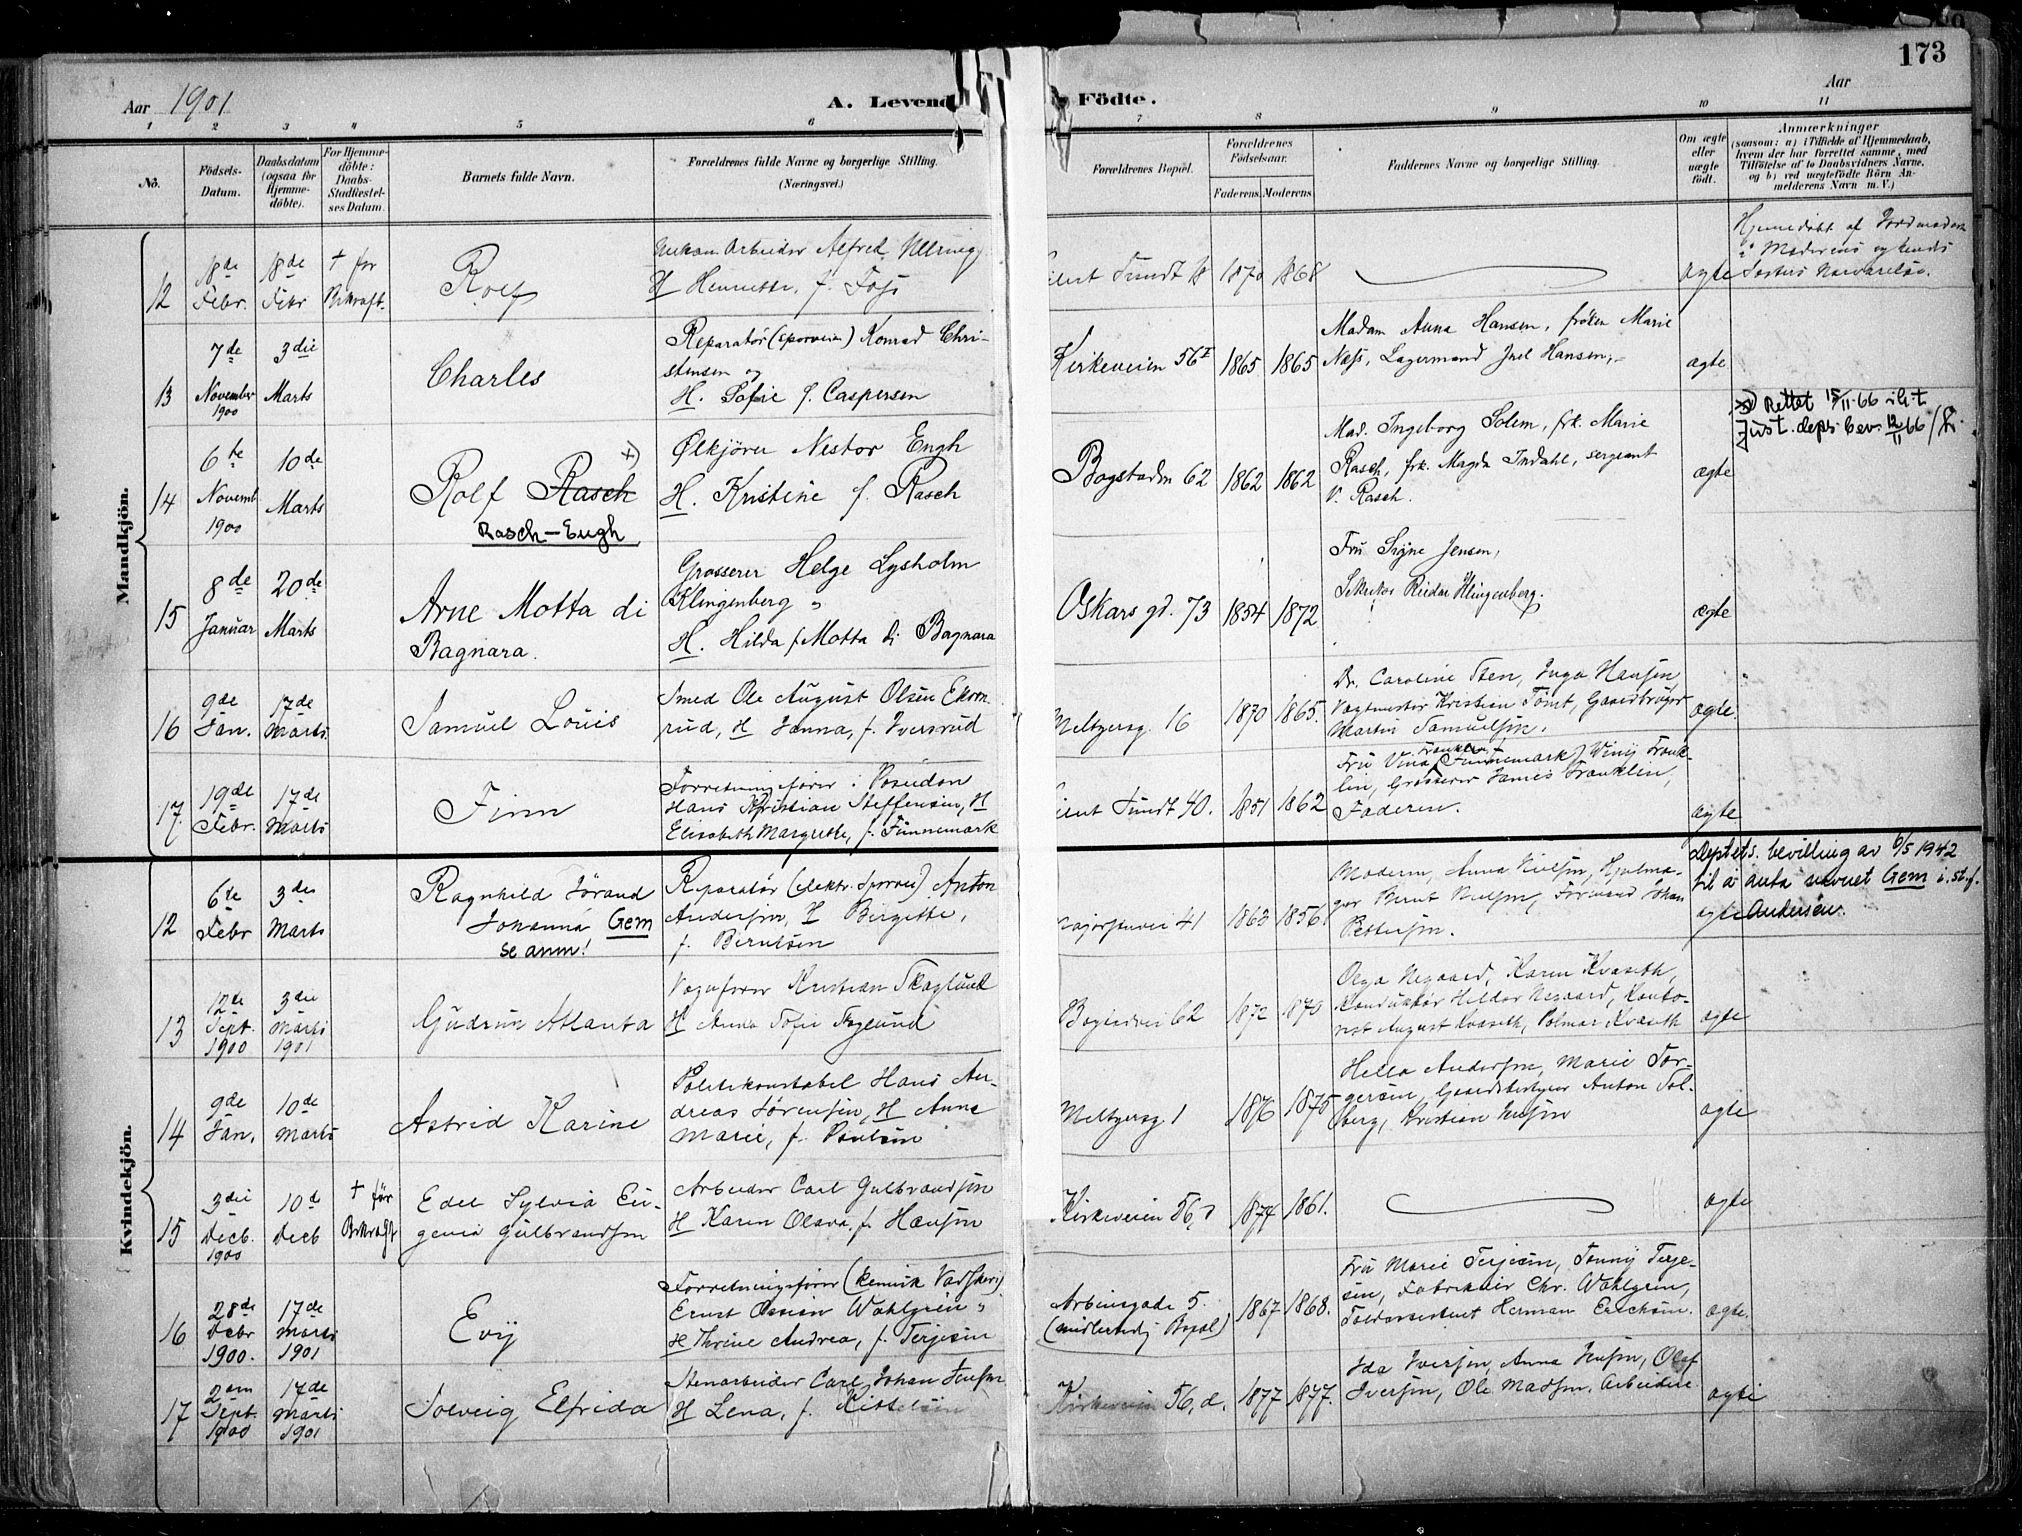 173
Aar 1901
A. Levende Födte.
Aar
1 2 3 4 5 6 7 8 9 10 11
No.
Födsels-Datum.
Daabsdatum (ogsaa for Hjemmedöbte).
For Hjemmedöbte: Daabs-Stadfæstelses Datum.
Barnets fulde Navn.
Forældrenes fulde Navne og borgerlige Stilling. (Næringsvei.)
Forældrenes Bopæl.
Forældrenes Födselsaar.
Faderens. Moderens.
Faddernes Navne og borgerlige Stilling.
Om ægte eller uægte födt.
Anmærkninger
(saasom: a) i Tilfælde af Hjemmedaab,
hvem der har forrettet samme, med
Tilföielse af to Daabsvidners Navne,
og b) ved uægtefödte Börn An-
melderens Navn m. V.)
Mandkjön.
12 18de Febr. 18de Febr † for Bekræft. Rolf
Arbeider Alfred
H Henriette, f. Foss
Eilert Sundt 1870 1868 ægte
Hjemmedöbt af Jordmoderen
13 7de November 1900 3die Marts Charles
Reparatör (sporveien) Konrad Chri-
stensen og
H. Sofie f. Caspersen
Kirkeveien 56I 1865 1865
Madam Anna Hansen, fröken Marie
Næss, Lagermand Juel Hansen,
ægte
14 6te Novemb. 1900 10de Marts Rolf Rasch x)
Rasch-Engh
Ölkjörer Nestor Engh
H. Kristine f. Rasch
Bogstadvn 62 1862 1862
Mad. Ingeborg Solem, frk. Marie
Rasch, frk. Magda Indahl, sergeant
V. Rasch.
ægte
x) Rettet 15/11.66 i h.t.
Just.deps bev. 12/11 66
15 8de Januar 20de Marts Arne Motta di
Bagnara.
Grosserer Helge Lysholm
Klingenberg "
H. Hilda f. Motta di Bagnara
Oskars gd. 73 1854 1872
Fru Signe Jensen,
Sekretær Reidar Klingenberg.
ægte
16 9de Jan. 17de Marts. Samuel Louis
Smed Ole August Olsen Ekorn-
rud, H Hanna, f. Iversrud
Meltzersg. 16 1870 1865.
Dr. Caroline Steen, Inga Hansen,
Vagtmester Kristian Tömt, Gaardbruger
Martin Samuelsen.
ægte.
17. 19de Febr. 17de Marts Finn
Forretningsförer i Poseidon
Hans Kristian Steffensen, H
Elisabeth Margrethe, f. Finnemark
Eilert Sundt 40. 1851 1862
Fru Vina Franklin f. Finnemark, Winij Frank-
lin, Grosserer James Franklin,
Faderen.
ægte
Kvindekjön.
12 6te Febr 3die Marts Ragnhild Jörand
Johanna Gem
se anm!
Reparatör (elektr. Sporvei) Anton
Andersen, H Birgitte,
f. Berntsen
Majorstuvei 41 1863 1856
Moderen, Anna Nielsen, Hjulma-
ger Bernt Nielsen, Formand Johan
Pettersen.
ægte
Deptets. bevilling av 6/5 1942
til å anta navnet Gem i.st.f.
Andersen.
13 12de Sept. 1900 3die Marts 1901 Gudrun Atlanta
Vognförer Kristian Skoglund
H Anna Sofie Foglund
Bogstadvei 62 1872 1870
Olga Negaard, Karen Kvaseth,
Konduktör Hildor Negaard, Konto-
rist August Kvaseth, Polmar Kvaseth
ægte
14 9de Jan. 10de Marts Astrid Karine
Politikonstabel Hans An-
dreas Sörensen, H Anna
Marie, f. Paulsen
Meltzersg 1 1876 1875
Helle Andersen, Marie Tor-
gersen, Gaardsbestyrer Anton Sol-
berg, Kristian Jensen
ægte
15 3die Decb. 1900 10de Decb † för Bekræft Edel Sylvia Eu-
genia Gulbrandsen
Arbeider Carl Gulbrandsen
H Karen Olava, f. Hansen
Kirkeveien 56, 1874 1861. ægte
16 28de Febr 1900. 17de Marts 1901 Evij
Forretningsförer (kemisk Vadskeri)
Ernst Ossian Wahlgren "
H Thrine Andrea, f. Terjesen
Arbinsgade 5.
(midlertidig Bopæl)
1867 1868.
Fru Marie Terjesen, Jenny Terje-
sen, Fabrikeier Chr. Wahlgren,
Toldassistent Herman Ericksen.
ægte.
17 2den Sept. 1900 17de Marts 1901 Solveig Elfrida
Stenarbeider Carl Johan Jensen
H Lena, f. Kittelsen
Kirkeveien 56, d. 1877 1877.
Ida Iversen, Anna Jensen, Olaf
Iversen, Ole Madsen, Arbeidere
ægte